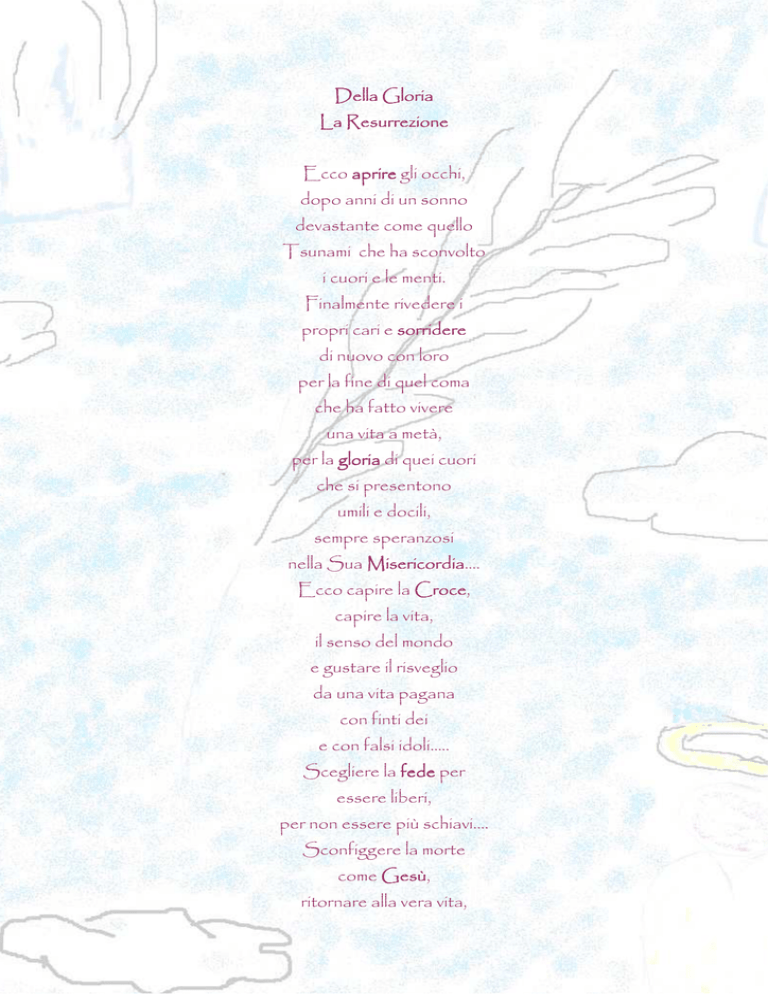 Della Gloria
La Resurrezione
Ecco aprire gli occhi,
dopo anni di un sonno
devastante come quello
Tsunami che ha sconvolto
i cuori e le menti.
Finalmente rivedere i
propri cari e sorridere
di nuovo con loro
per la fine di quel coma
che ha fatto vivere
una vita a metà,
per la gloria di quei cuori
che si presentono
umili e docili,
sempre speranzosi
nella Sua Misericordia....
Ecco capire la Croce,
capire la vita,
il senso del mondo
e gustare il risveglio
da una vita pagana
con finti dei
e con falsi idoli.....
Scegliere la fede per
essere liberi,
per non essere più schiavi....
Sconfiggere la morte
come Gesù,
ritornare alla vera vita,